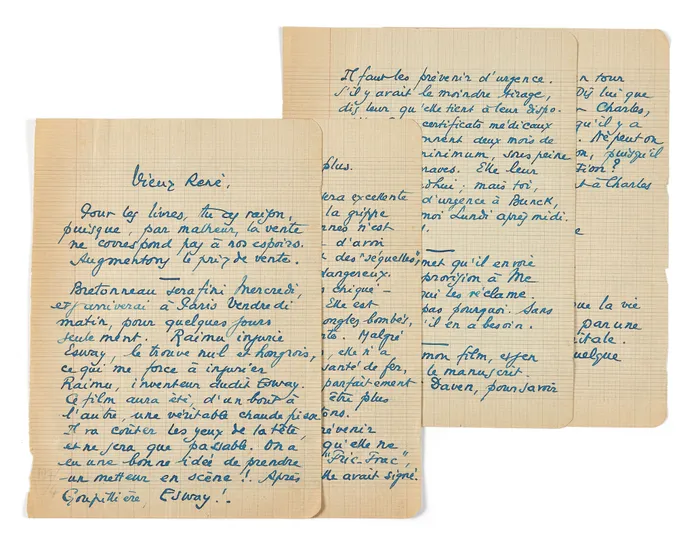 Vieux René,
Pour les livres, tu as raison,
puisque, par malheur, la vente
ne correspond pas à nos espoirs.
Augmentons le prix de vente.
Bretonneau sera fini Mercredi,
et j'arriverai à Paris Vendredi
matin, pour quelques jours
seulement. Raimu injurie
Esway, le trouve nul et hongrois,
ce qui me force à injurier
Raimu, inventeur dudit Esway.
Ce film aura été, d'un bout à
l'autre, une véritable chaude pisse
Il va coûter les yeux de la tête,
et ne sera que passable. On a
eu une bonne idée de prendre
un metteur en scène !! Après
Goupillière, Esway !.
plus.
sera excellente
la grippe
nes n'est
d'avoir
des "séquelles",
dangereux.
chiqué -
Elle est
ongles bombés,
te. Malgré
elle n'a
santé de fer,
parfaitement
être plus
ons.
prévenir
qu'elle ne
"Fric-Frac",
elle avait signé.
Il faut les prévenir d'urgence.
S'il y avait le moindre tirage,
dis leur qu'elle tient à leur dispo-
certificats médicaux
donnent deux mois de
minimum, sous peine
graves. Elle leur
; mais toi,
d'urgence à Bunck,
moi Lundi après midi.
met qu'il envoie
provision à Me
qui les réclame.
pas pourquoi. Sans
il en a besoin.
mon film, est en
le manuscrit.
Daven, pour savoir
n tour
Dis lui que
Charles,
qu'il y a
Ne peut on
on, puisqu'il
tion ?
t à Charles
e
que la vie
par une
itale.
quelque